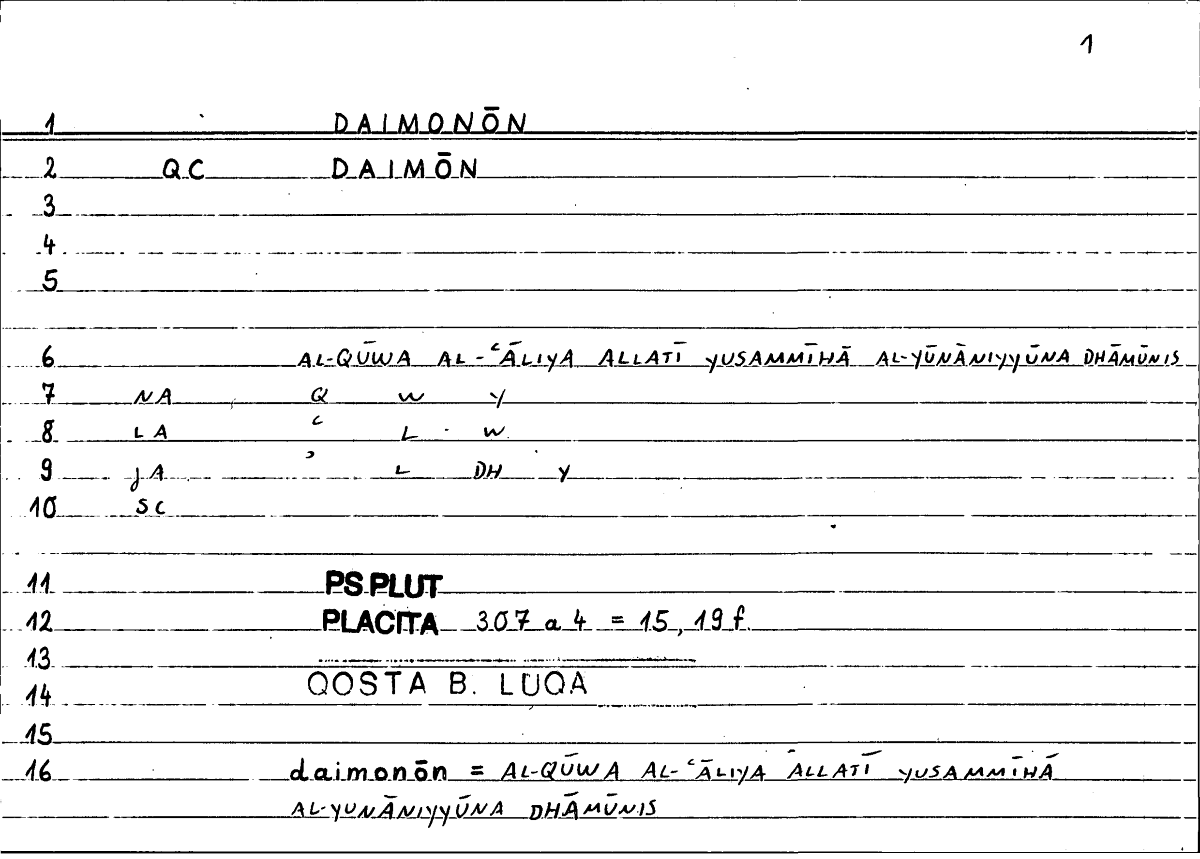 1
1 DAIMONŌN
2 QC DAIMŌN
3
4
5
6 AL-QŪWA AL-ʿĀLIYA ALLATĪ YUSAMMĪHĀ AL-YŪNĀNIYYŪNA DHĀMŪNIS
7 NA Q W Y
8 LA ʿ L W
9 JA ʾ L DH Y
10 SC
11 PS.PLUT
12 PLACITA 307 a 4 = 15, 19 f.
13
14 QOSTA B. LUQA
15
16 daimonōn = AL-QŪWA AL-ʿĀLIYA ALLATĪ YUSAMMĪHĀ
AL-YUNĀNIYYŪNA DHĀMŪNIS